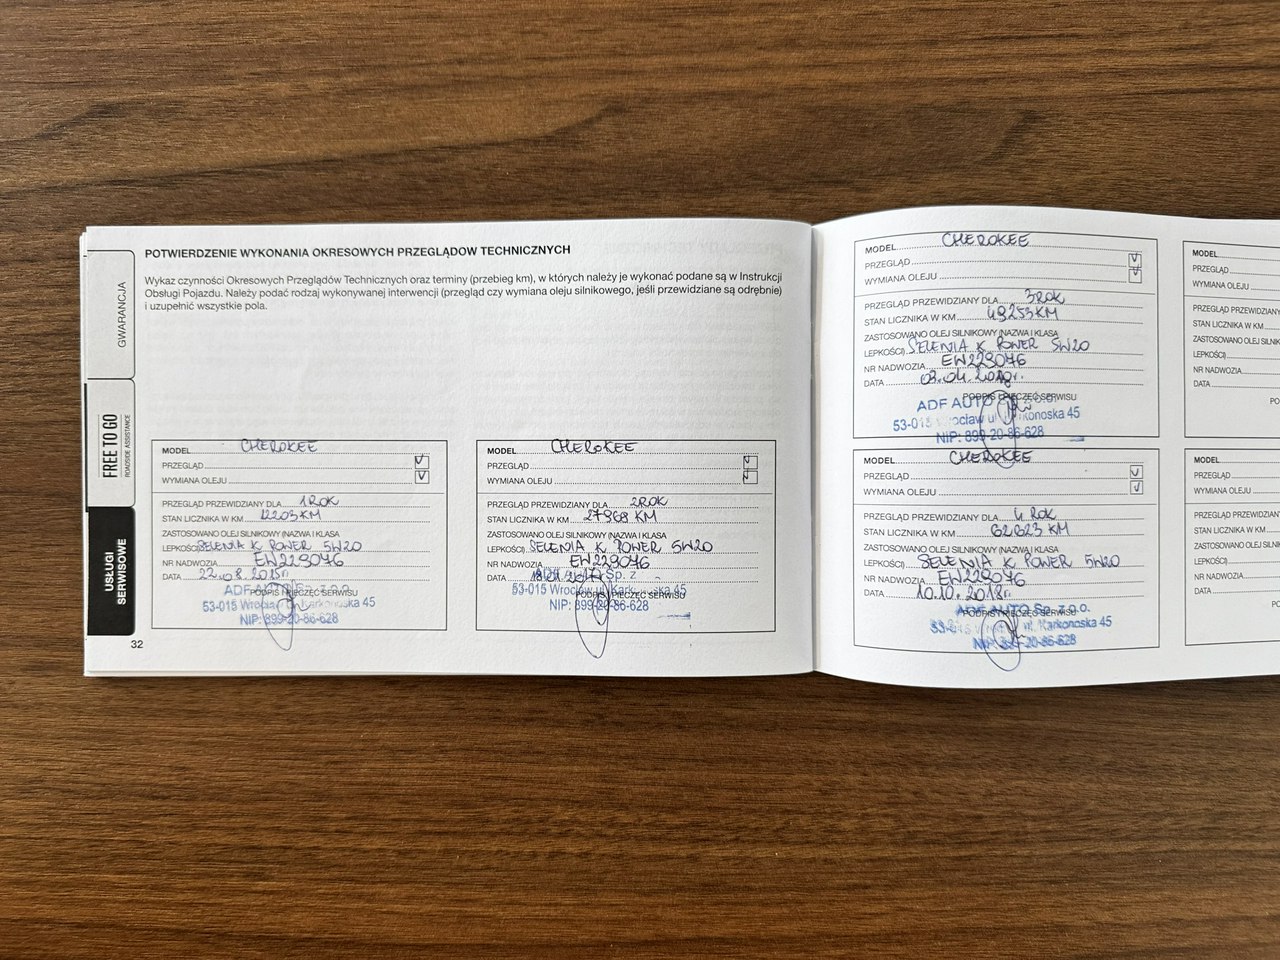 GWARANCJA
FREE TO GO
ROADSIDE ASSISTANCE
USŁUGI
SERWISOWE
POTWIERDZENIE WYKONANIA OKRESOWYCH PRZEGLĄDOW TECHNICZNYCH
Wykaz czynności Okresowych Przeglądów Technicznych oraz terminy (przebieg km), w których należy je wykonać podane są w Instrukcji
Obsługi Pojazdu. Należy podać rodzaj wykonywanej interwencji (przegląd czy wymiana oleju silnikowego, jeśli przewidziane są odrębnie)
i uzupełnić wszystkie pola.
MODEL CHEROKEE
PRZEGLĄD V
WYMIANA OLEJU V
PRZEGLĄD PRZEWIDZIANY DLA 1 ROK
STAN LICZNIKA W KM 12203 KM
ZASTOSOWANO OLEJ SILNIKOWY (NAZWA I KLASA
LEPKOŚCI) SELENIA K POWER 5W20
NR NADWOZIA EW229076
DATA 22.08.2015r.
PODPIS I PIECZĘĆ SERWISU
53-015 Wrocław ul. Karkonoska 45
NIP: 899-20-86-628
MODEL CHEROKEE
PRZEGLĄD V
WYMIANA OLEJU V
PRZEGLĄD PRZEWIDZIANY DLA 2 ROK
STAN LICZNIKA W KM 27968 KM
ZASTOSOWANO OLEJ SILNIKOWY (NAZWA I KLASA
LEPKOŚCI) SELENIA K POWER 5W20
NR NADWOZIA EW229076
DATA
Sp. z
PODPIS I PIECZĘĆ SERWISU
53-015 Wrocław ul. Karkonoska 45
NIP: 899-20-86-628
32
MODEL CHEROKEE
PRZEGLĄD V
WYMIANA OLEJU V
PRZEGLĄD PRZEWIDZIANY DLA 3 ROK
STAN LICZNIKA W KM 49253 KM
ZASTOSOWANO OLEJ SILNIKOWY (NAZWA I KLASA
LEPKOŚCI) SELENIA K POWER 5W20
NR NADWOZIA EW229076
DATA 03.04.
PODPIS I PIECZĘĆ SERWISU
ADF AUTO Sp. z o.o.
53-015 Wrocław ul. Karkonoska 45
NIP: 899-20-86-628
MODEL CHEROKEE
PRZEGLĄD V
WYMIANA OLEJU V
PRZEGLĄD PRZEWIDZIANY DLA 4 ROK
STAN LICZNIKA W KM 62623 KM
ZASTOSOWANO OLEJ SILNIKOWY (NAZWA I KLASA
LEPKOŚCI) SELENIA K POWER 5W20
NR NADWOZIA EW229076
DATA 10.10.2018r.
PODPIS I PIECZĘĆ SERWISU
ADF AUTO Sp. z o.o.
53-015 ul. Karkonoska 45
NIP: 899-20-86-628
MODEL
PRZEGLĄD
WYMIANA OLEJU
PRZEGLĄD PRZEWIDZIANY
STAN LICZNIKA W KM
ZASTOSOWANO OLEJ SILN
LEPKOŚCI)
NR NADWOZIA
DATA
PO
MODEL
PRZEGLĄD
WYMIANA OLEJU
PRZEGLĄD PRZEWIDZIAN
STAN LICZNIKA W KM
ZASTOSOWANO OLEJ SILN
LEPKOŚCI)
NR NADWOZIA
DATA
P